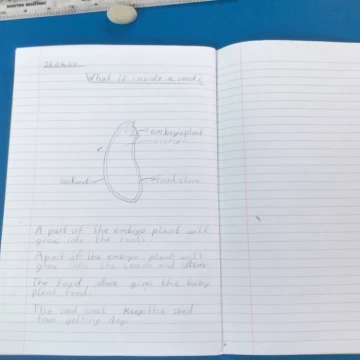 What is inside a seed?
embryo plant
seed coat
food store
A part of the embryo plant will
grow into the roots.
A part of the embryo plant will
grow into the leaves and stem.
The food store gives the baby
plant food.
The seed coat keeps the seed
from getting dry.